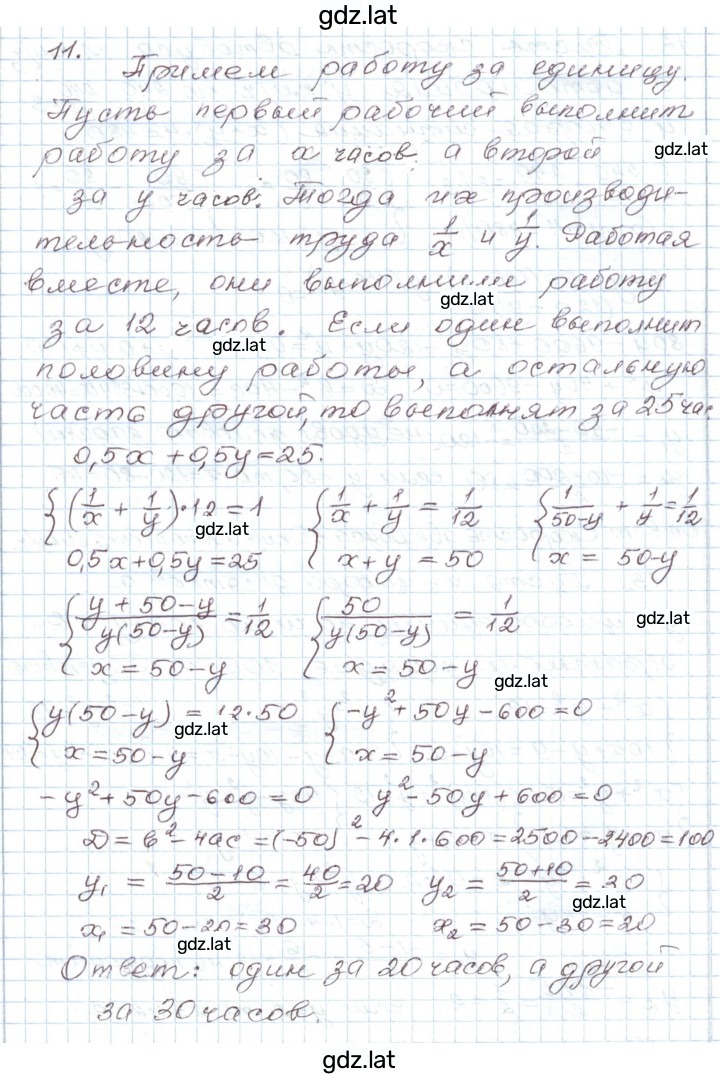 gdz.lat
11.
Примем работу за единицу.
Пусть первый рабочий выполнит
работу за x часов, а второй gdz.lat
за y часов. Тогда их производи-
тельность труда 1/x и 1/y. Работая
вместе, они выполнили работу
gdz.lat
за 12 часов. Если один выполнит
gdz.lat
половину работы, а остальную
часть другой, то выполнят за 25 час.
0,5x + 0,5y = 25.
{(1/x + 1/y)·12 = 1 {1/x + 1/y = 1/12 {1/(50-y) + 1/y = 1/12
gdz.lat
0,5x+0,5y=25 x+y = 50 x = 50-y
{(y+50-y)/(y(50-y)) = 1/12 {50/(y(50-y)) = 1/12 gdz.lat
x = 50-y x = 50-y
gdz.lat
{y(50-y) = 12·50 {-y²+50y-600=0
gdz.lat
x=50-y x = 50-y
-y²+50y-600=0 y²-50y+600=0
D = b²-4ac = (-50)²-4·1·600=2500-2400=100
y₁ = (50-10)/2 = 40/2 = 20 y₂ = (50+10)/2 = 30
gdz.lat
x₁ = 50-20=30 x₂ = 50-30=20
gdz.lat
Ответ: один за 20 часов, а другой
за 30 часов.
gdz.lat